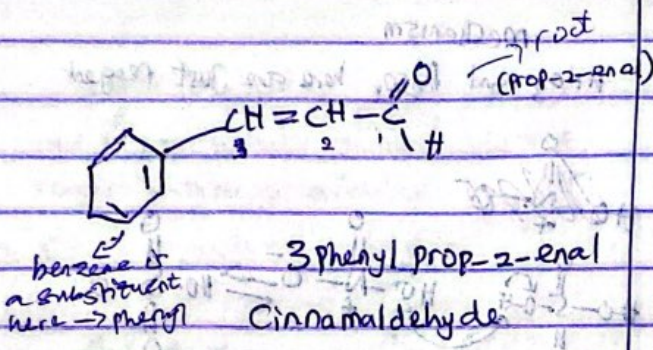 root
(prop-2-enal)
O
CH=CH-C
3 2 1 H
benzene is
a substituent
here → phenyl
3 phenyl prop-2-enal
Cinnamaldehyde